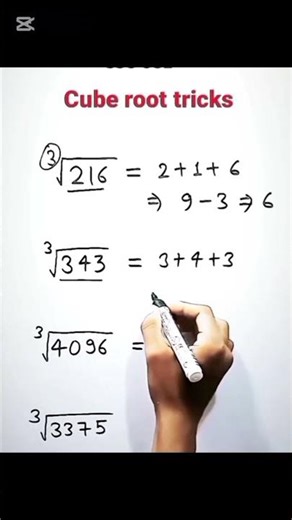 Cube root tricks
³√216 = 2+1+6
⇒ 9-3⇒6
³√343 = 3+4+3
³√4096 =
³√3375